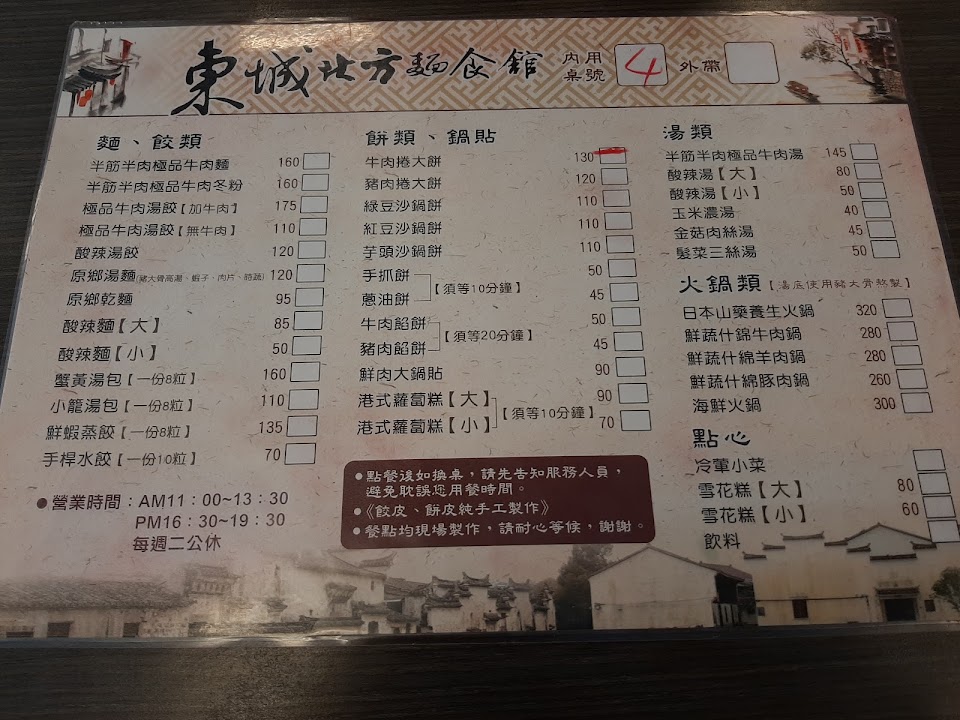 東城北方麵食館 內用桌號 4 外帶
麵、餃類
半筋半肉極品牛肉麵 160
半筋半肉極品牛肉冬粉 160
極品牛肉湯餃【加牛肉】 175
極品牛肉湯餃【無牛肉】 110
酸辣湯餃 120
原鄉湯麵(豬大骨高湯、蝦子、肉片、時蔬) 120
原鄉乾麵 95
酸辣麵【大】 85
酸辣麵【小】 50
蟹黃湯包【一份8粒】 160
小籠湯包【一份8粒】 110
鮮蝦蒸餃【一份8粒】 135
手桿水餃【一份10粒】 70
●營業時間：AM11：00~13：30
PM16：30~19：30
每週二公休
餅類、鍋貼
牛肉捲大餅 130
豬肉捲大餅 120
綠豆沙鍋餅 110
紅豆沙鍋餅 110
芋頭沙鍋餅 110
手抓餅 50
蔥油餅 45
【須等10分鐘】
牛肉餡餅 50
豬肉餡餅 45
【須等20分鐘】
鮮肉大鍋貼 90
港式蘿蔔糕【大】 90
港式蘿蔔糕【小】 70
【須等10分鐘】
●點餐後如換桌，請先告知服務人員，
避免耽誤您用餐時間。
●《餃皮、餅皮純手工製作》
●餐點均現場製作，請耐心等候，謝謝。
湯類
半筋半肉極品牛肉湯 145
酸辣湯【大】 80
酸辣湯【小】 50
玉米濃湯 40
金菇肉絲湯 45
髮菜三絲湯 50
火鍋類【湯底使用豬大骨熬製】
日本山藥養生火鍋 320
鮮蔬什錦牛肉鍋 280
鮮蔬什綿羊肉鍋 280
鮮蔬什綿豚肉鍋 260
海鮮火鍋 300
點心
冷葷小菜
雪花糕【大】 80
雪花糕【小】 60
飲料